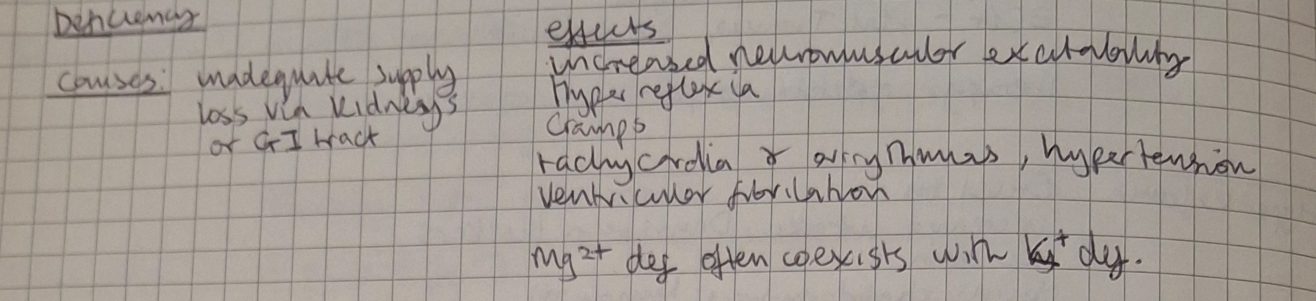 Deficiency
Causes: inadequate supply
loss via kidneys
or GI tract
effects
increased neuromuscular excitability
Hyper reflexia
Cramps
tachycardia & arrythmias, hypertension
ventricular fibrilation
Mg2+ def often coexists with K+ def.